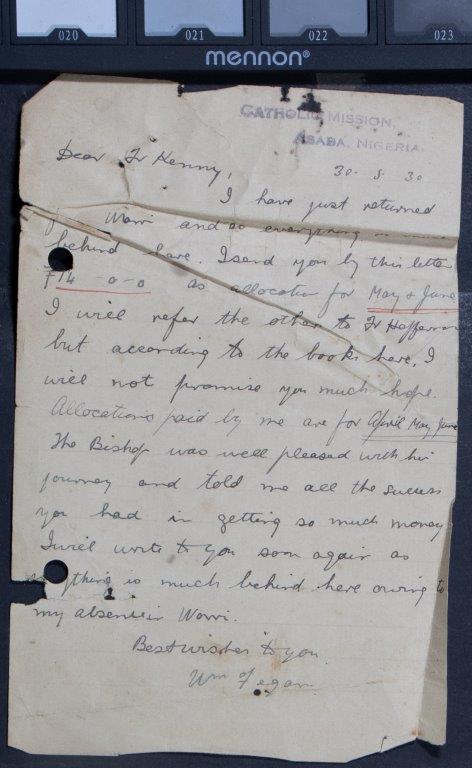 020 021 022 023
mennon®
CATHOLIC MISSION,
ASABA, NIGERIA.
Dear Fr Kenny, 30. 5. 30
I have just returned
Warri and as everything
behind here. I send you by this letter
£14-0-0 as allocation for May & June
I will refer the other to Fr Heffernan
but according to the books here, I
will not promise you much hope.
Allocations paid by me are for April May June
The Bishop was well pleased with his
journey and told me all the success
you had in getting so much money
I will write to you soon again as
is much behind here owing to
my absence in Warri.
Best wishes to you.
Wm Fegan.